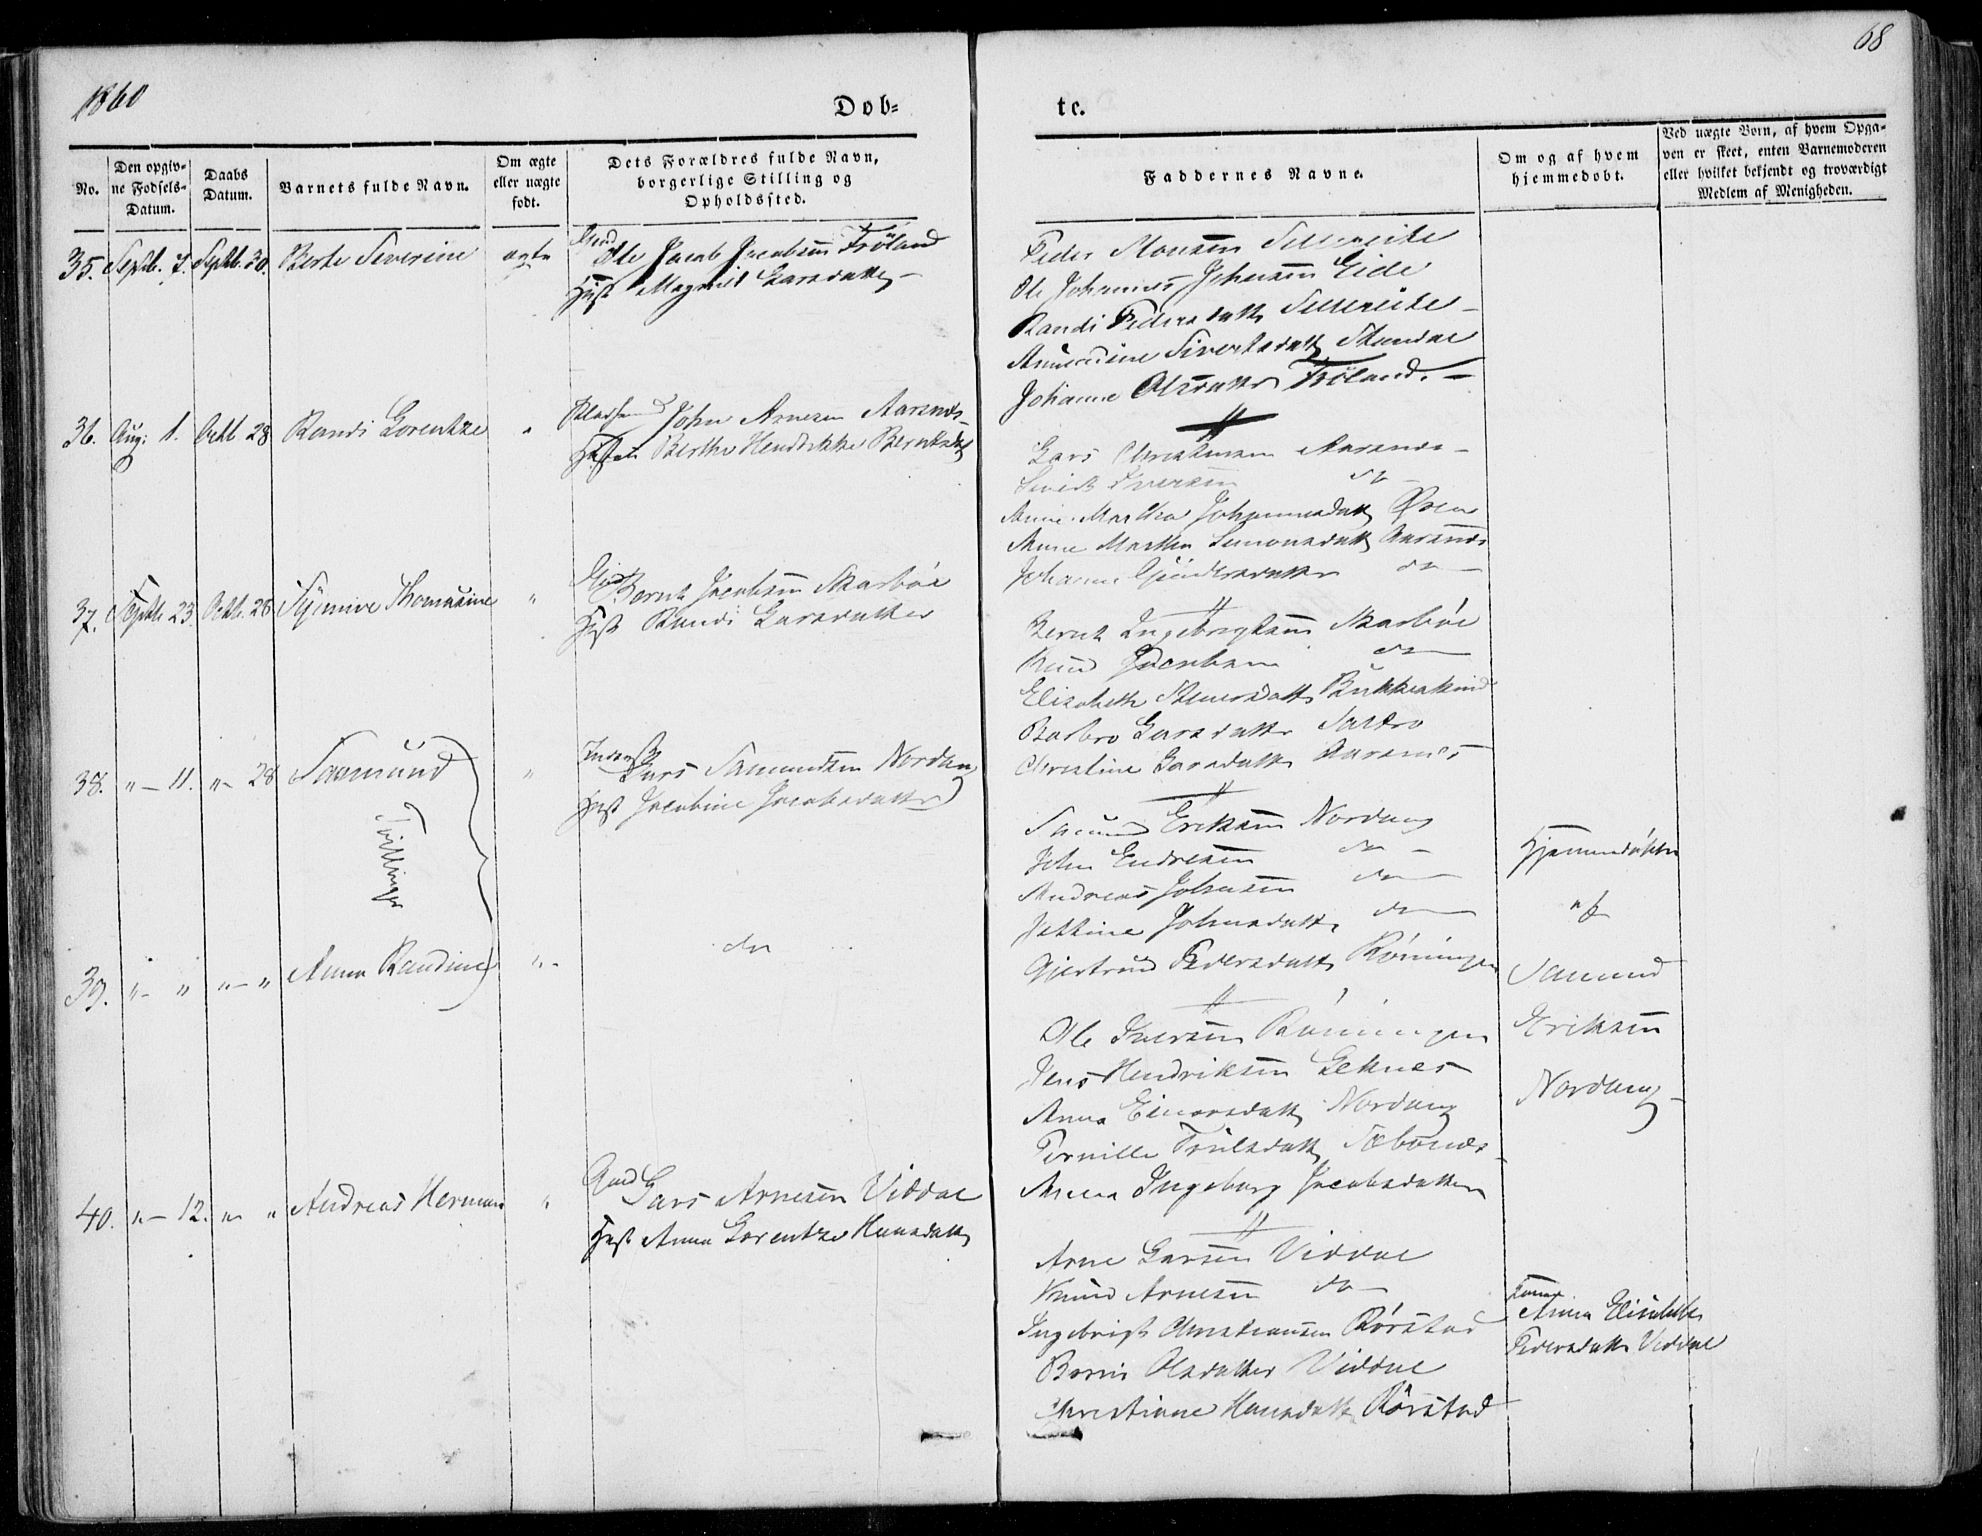 1860
68
Døb-
te.
No.
Den opgiv-
ne Fødsels-
Datum.
Daabs
Datum.
Barnets fulde Navn.
Om ægte
eller uægte
født.
Dets Forældres fulde Navn,
borgerlige Stilling og
Opholdssted.
Faddernes Navne.
Om og af hvem
hjemmedøbt.
Ved uægte Børn, af hvem Opga-
ven er skeet, enten Barnemoderen
eller hvilket bekjendt og troværdigt
Medlem af Menigheden.
35. Septb. 7. Septb. 30. Berte Severine ægte
Ole Jacob Jacobsen Frøland
Hust Magnild Larsdatter
Peder Monsen
Ole Johannes Johnsen Eide
Randi Pedersdatt
Sivertsdatt Standal
Johanne Olsdatter Frøland
36. Aug: 1. Octb. 28 Randi Lorentze "
John Arnesen Aarsnes
Berthe Hendrikke Berntsdatt
Lars Christensen Aarsnes
Iversen do
Anne Martha Johannesdatt Øien
Anne Martha Simonsdatt Aarsnes
Johanne do
37. Septb 23. Octb. 28 Thomasine "
Gmd Bernt Jacobsen Skarbøe
Hust Randi Larsdatter
Bernt Ingebrigtsen Skarbøe
Knud Jacobsen do
Elisabeth
Barbro Larsdatter
Christine Larsdatt Aarsnes
38. " - 11. " - 28 Samund "
Tvillinger
Inderst Lars Samundsen Nordang
Hust Jacobine Jacobsdatter
Samund Eriksen Nordang
John Endresen do
Andreas Johnsen do
Jettine Johnsdatt do
Gjertrud Pedersdatt Røningen
Hjemmedøbte
af
Samund
Eriksen
Nordang
39. " - " " - " Anna Randine "
do
Ole Iversen Røningen
Jens Hendriksen Leknes
Anna Einarsdatt Nordang
Pernille Trulsdatt Sæbønes
Anna Ingeborg Jacobsdatter
40. " - 12. " - " Andreas Herman "
Gmd Lars Arnesen Viddal
Hust Anna Lorentze Hansdatt
Arne Larsen Viddal
Knud Arnesen do
Ingebrigt Christiansen Rørstad
Olsdatter Viddal
Christiane Hansdatt Rørstad
Anna Elisabeth
Pedersdatt Viddal